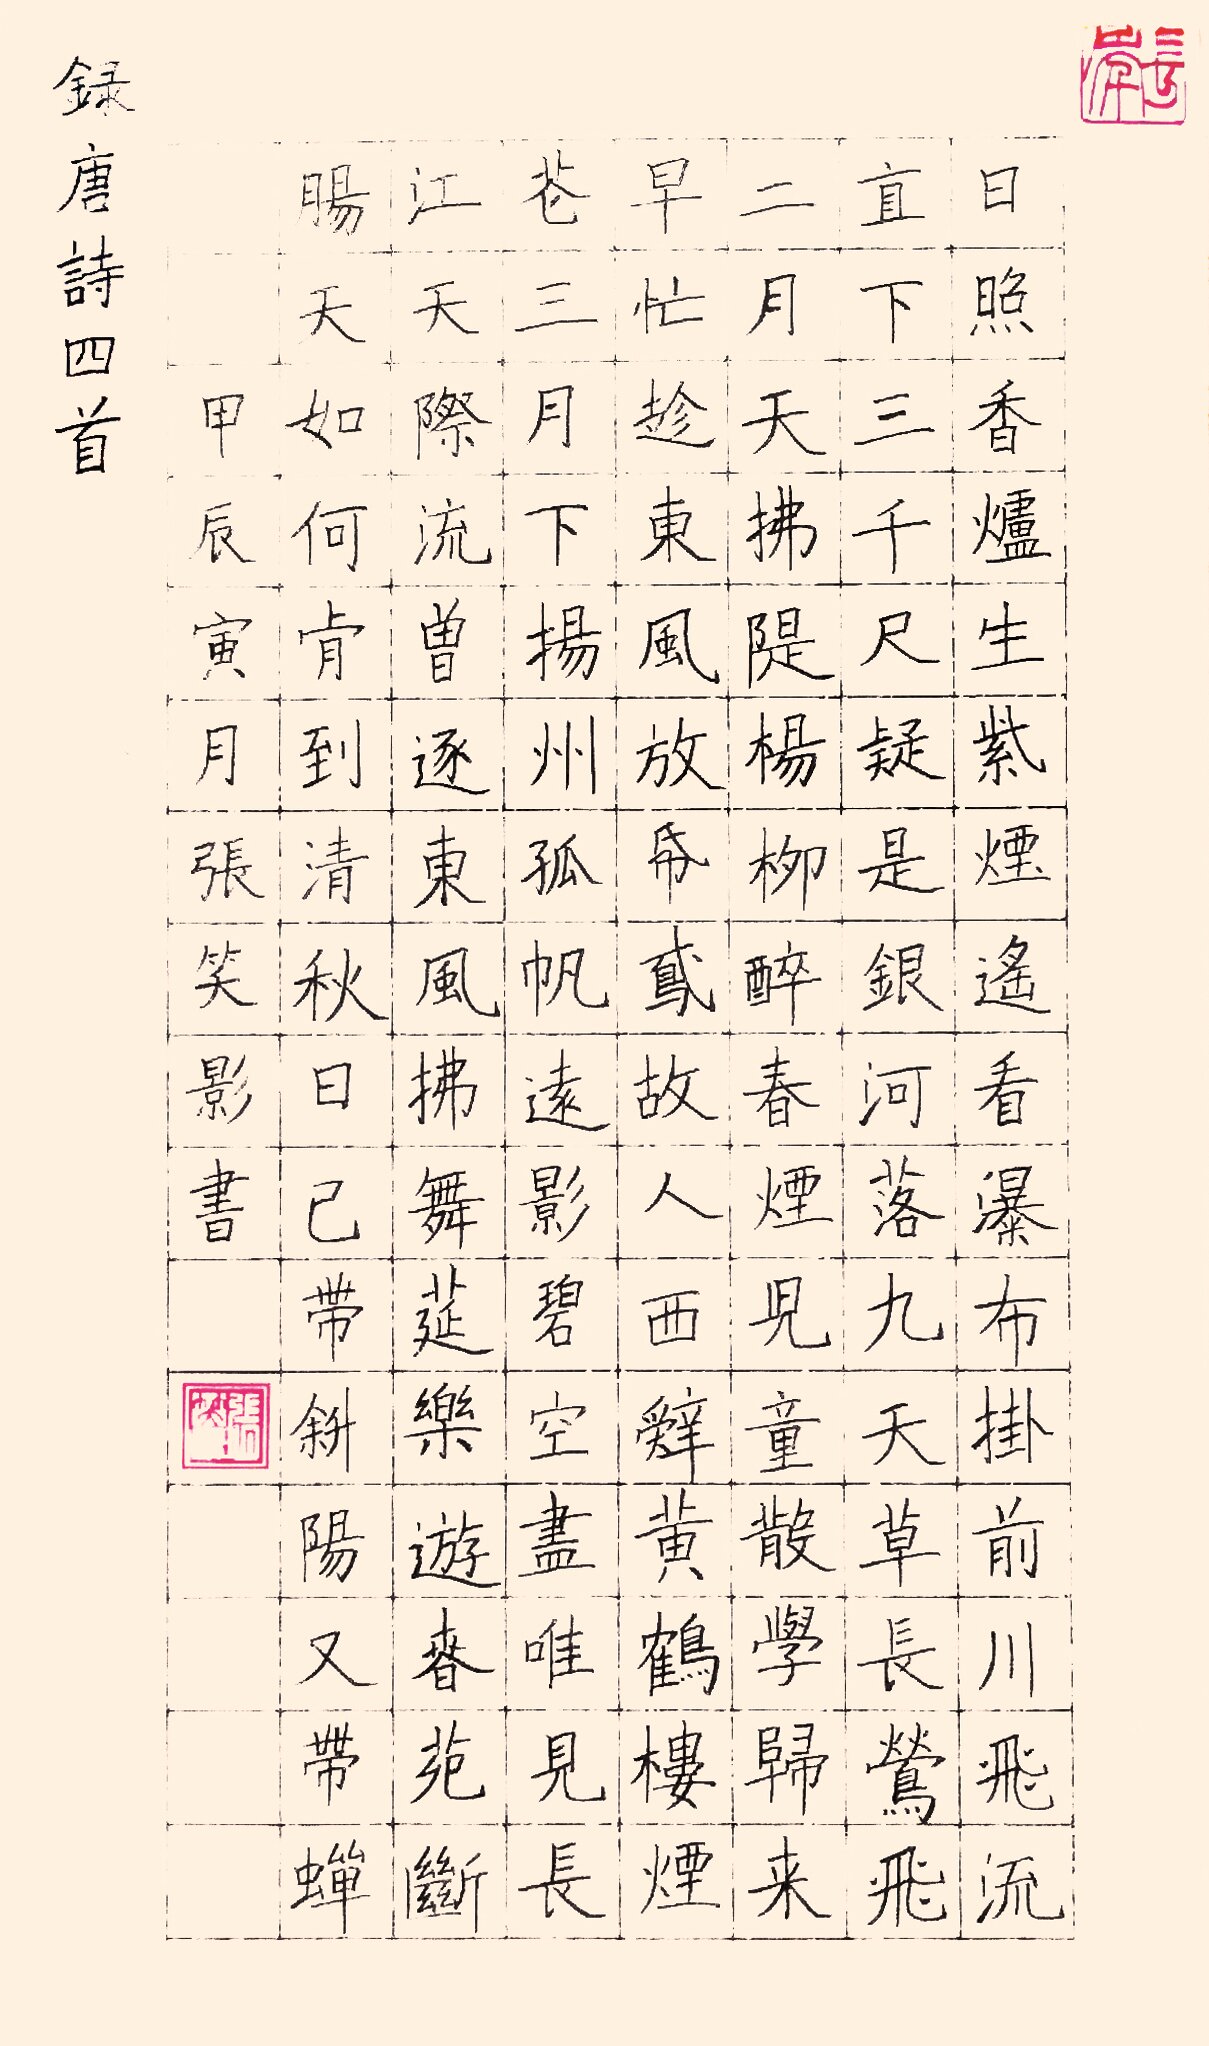 日照香爐生紫煙遙看瀑布掛前川飛流
直下三千尺疑是銀河落九天草長鶯飛
二月天拂隄楊柳醉春煙兒童散學歸来
早忙趁東風放帋鳶故人西辤黄鶴樓煙
苍三月下揚州孤帆遠影碧空盡唯見長
江天際流曽逐東風拂舞莚樂遊春苑斷
腸天如何肯到清秋日已帶斜陽又帶蟬
甲辰寅月張笑影書
録唐詩四首